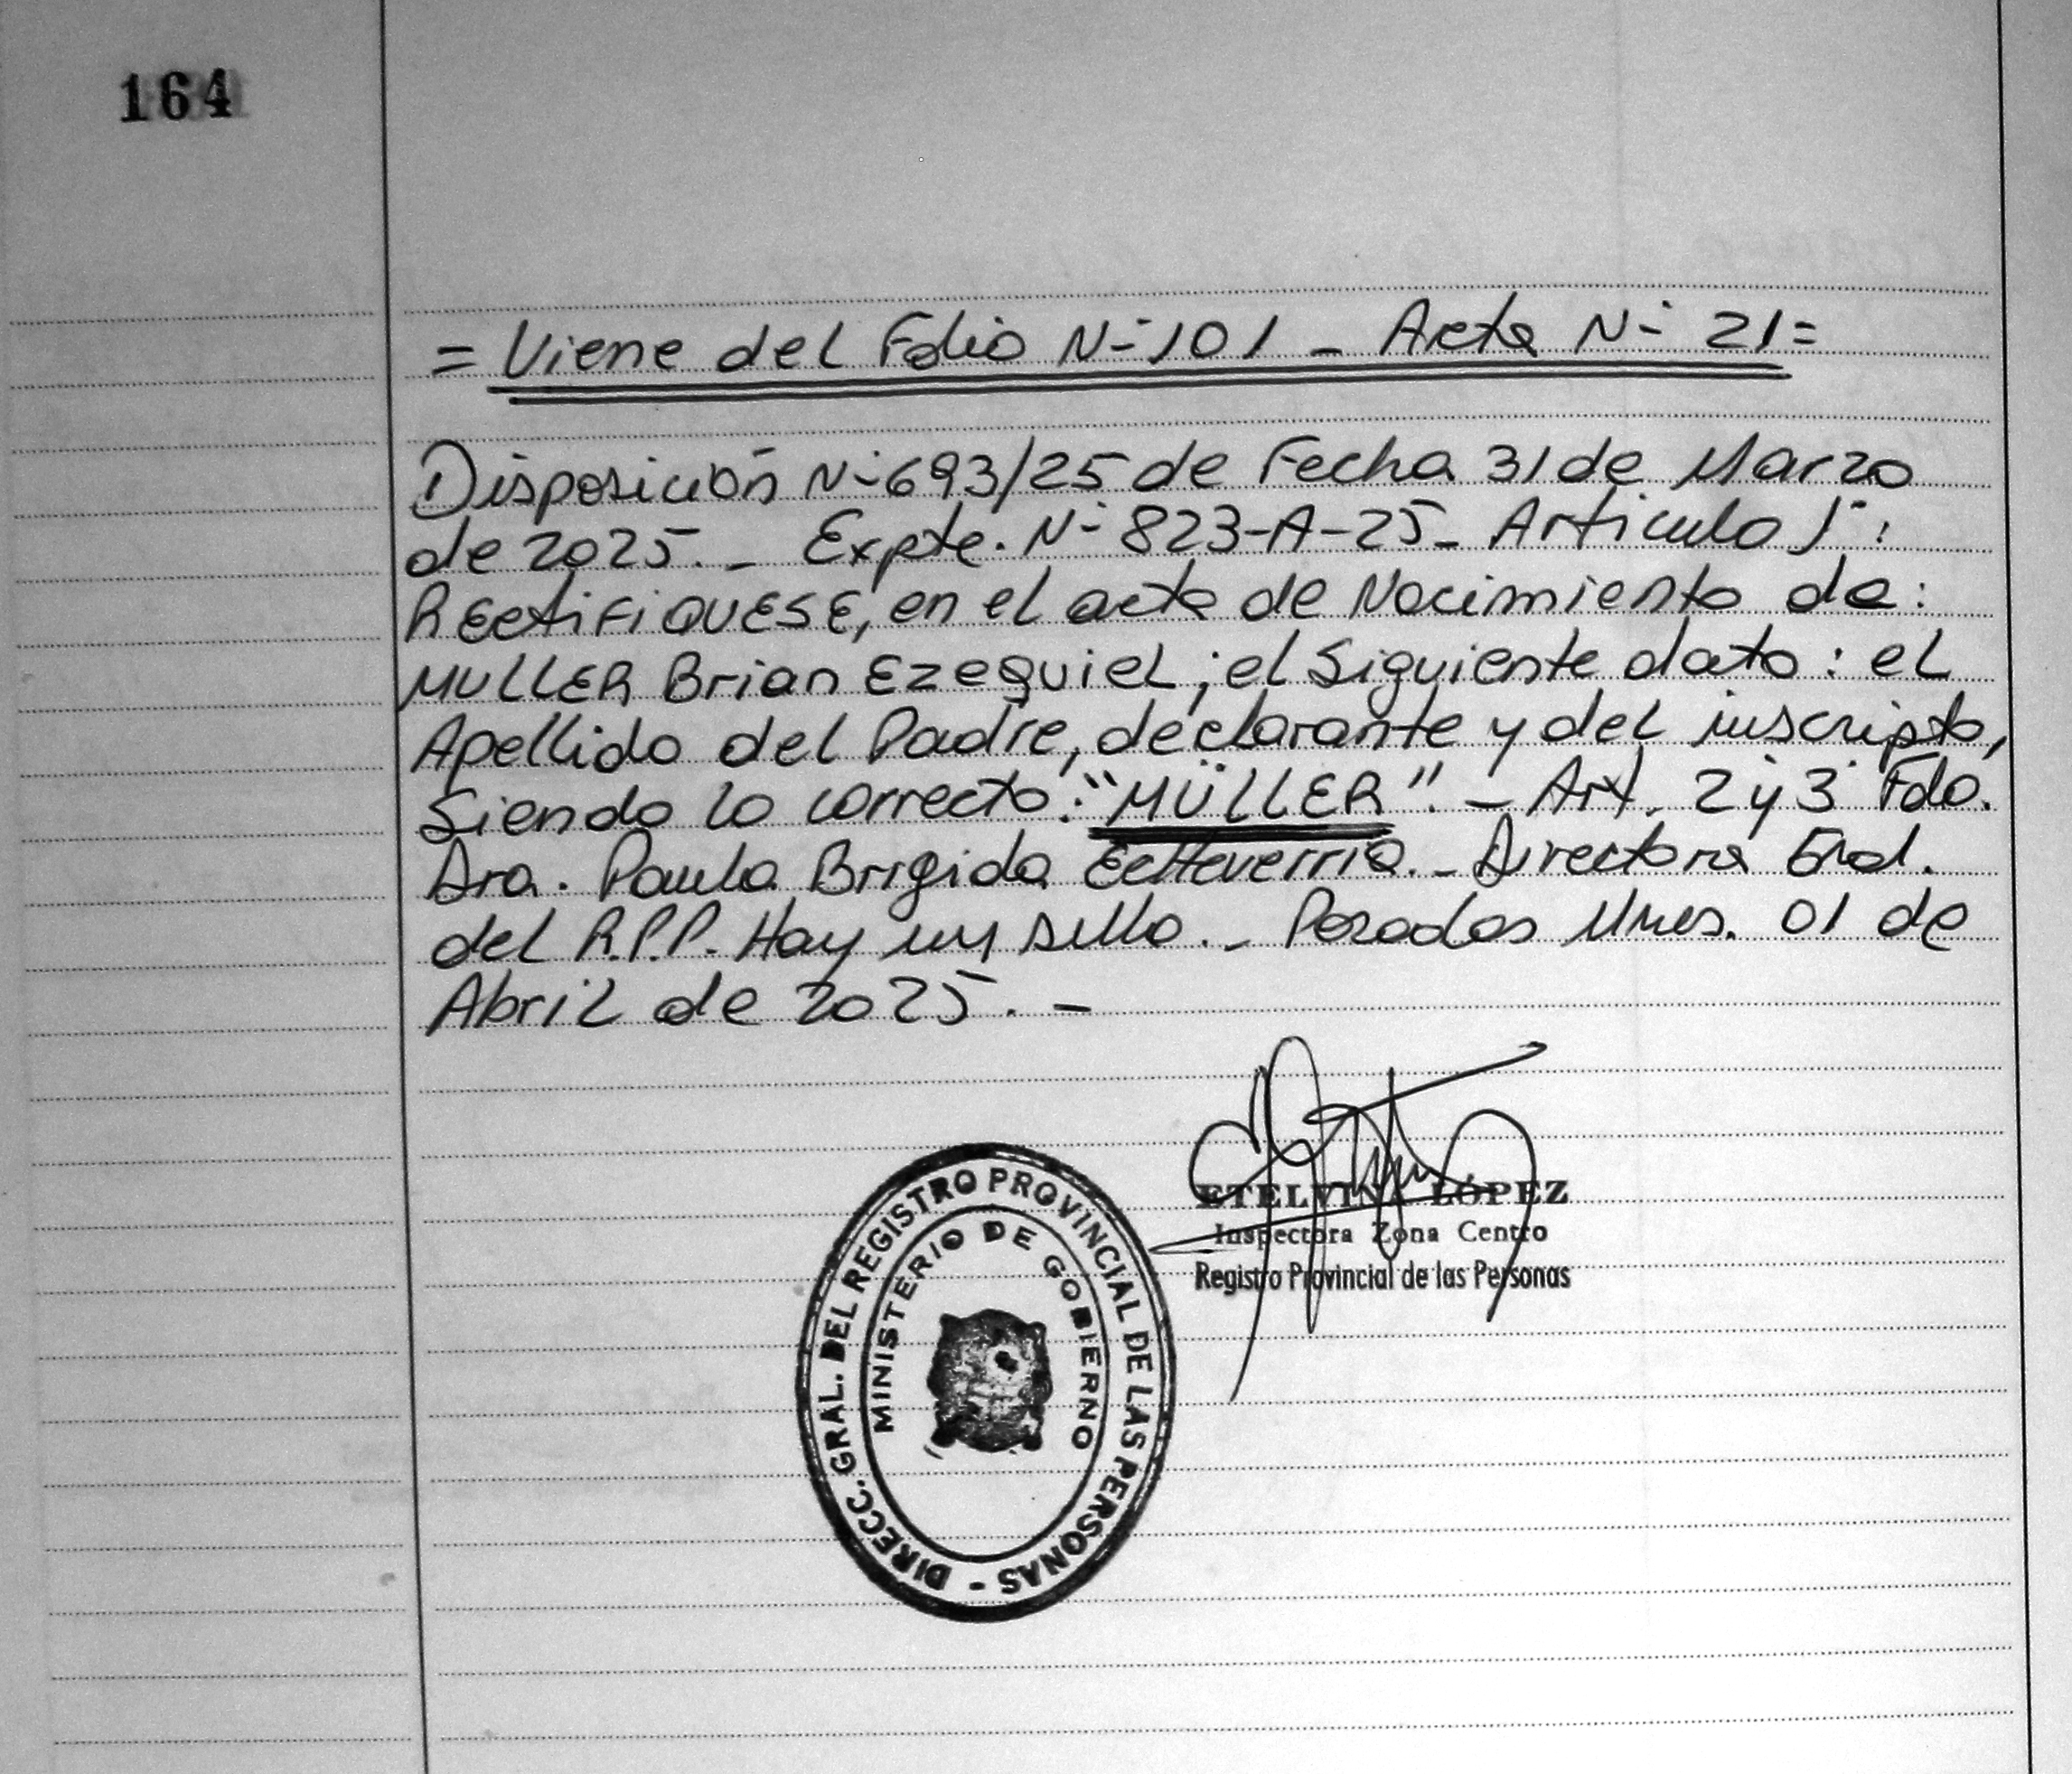 164
= Viene del Folio N° 101 - Acta N° 21 =
Disposición N° 693/25 de Fecha 31 de Marzo
de 2025. - Expte. N° 823-A-25 - Articulo 1°:
RECTIFIQUESE, en el acta de Nacimiento de:
MULLER Brian Ezequiel; el Siguiente dato: el
Apellido del Padre, declarante y del inscripto,
Siendo lo correcto: "MÜLLER". - Art. 2° y 3° Fdo.
Dra. Paula Brigida Echeverria. - Directora Gral.
del R.P.P. Hay un sello. - Posadas Mnes. 01 de
Abril de 2025. -
ETELVINA LÓPEZ
Inspectora Zona Centro
Registro Provincial de las Personas
DIRECC. GRAL. DEL REGISTRO PROVINCIAL DE LAS PERSONAS -
MINISTERIO DE GOBIERNO